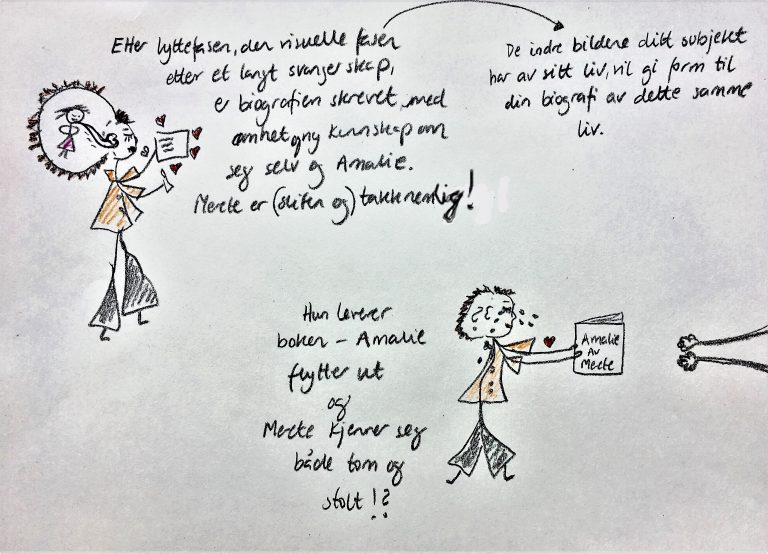 Etter lyttefasen, den visuelle fasen
etter et langt svangerskap,
er biografien skrevet, med
ømhet og ny kunnskap om
seg selv og Amalie.
Merete er (sliten og) takknemlig!
De indre bildene ditt subjekt
har av sitt liv, vil gi form til
din biografi av dette samme
liv.
Hun leverer
boken – Amalie
flytter ut
og
Merete kjenner seg
både tom og
stolt!?
Amalie
Av
Merete